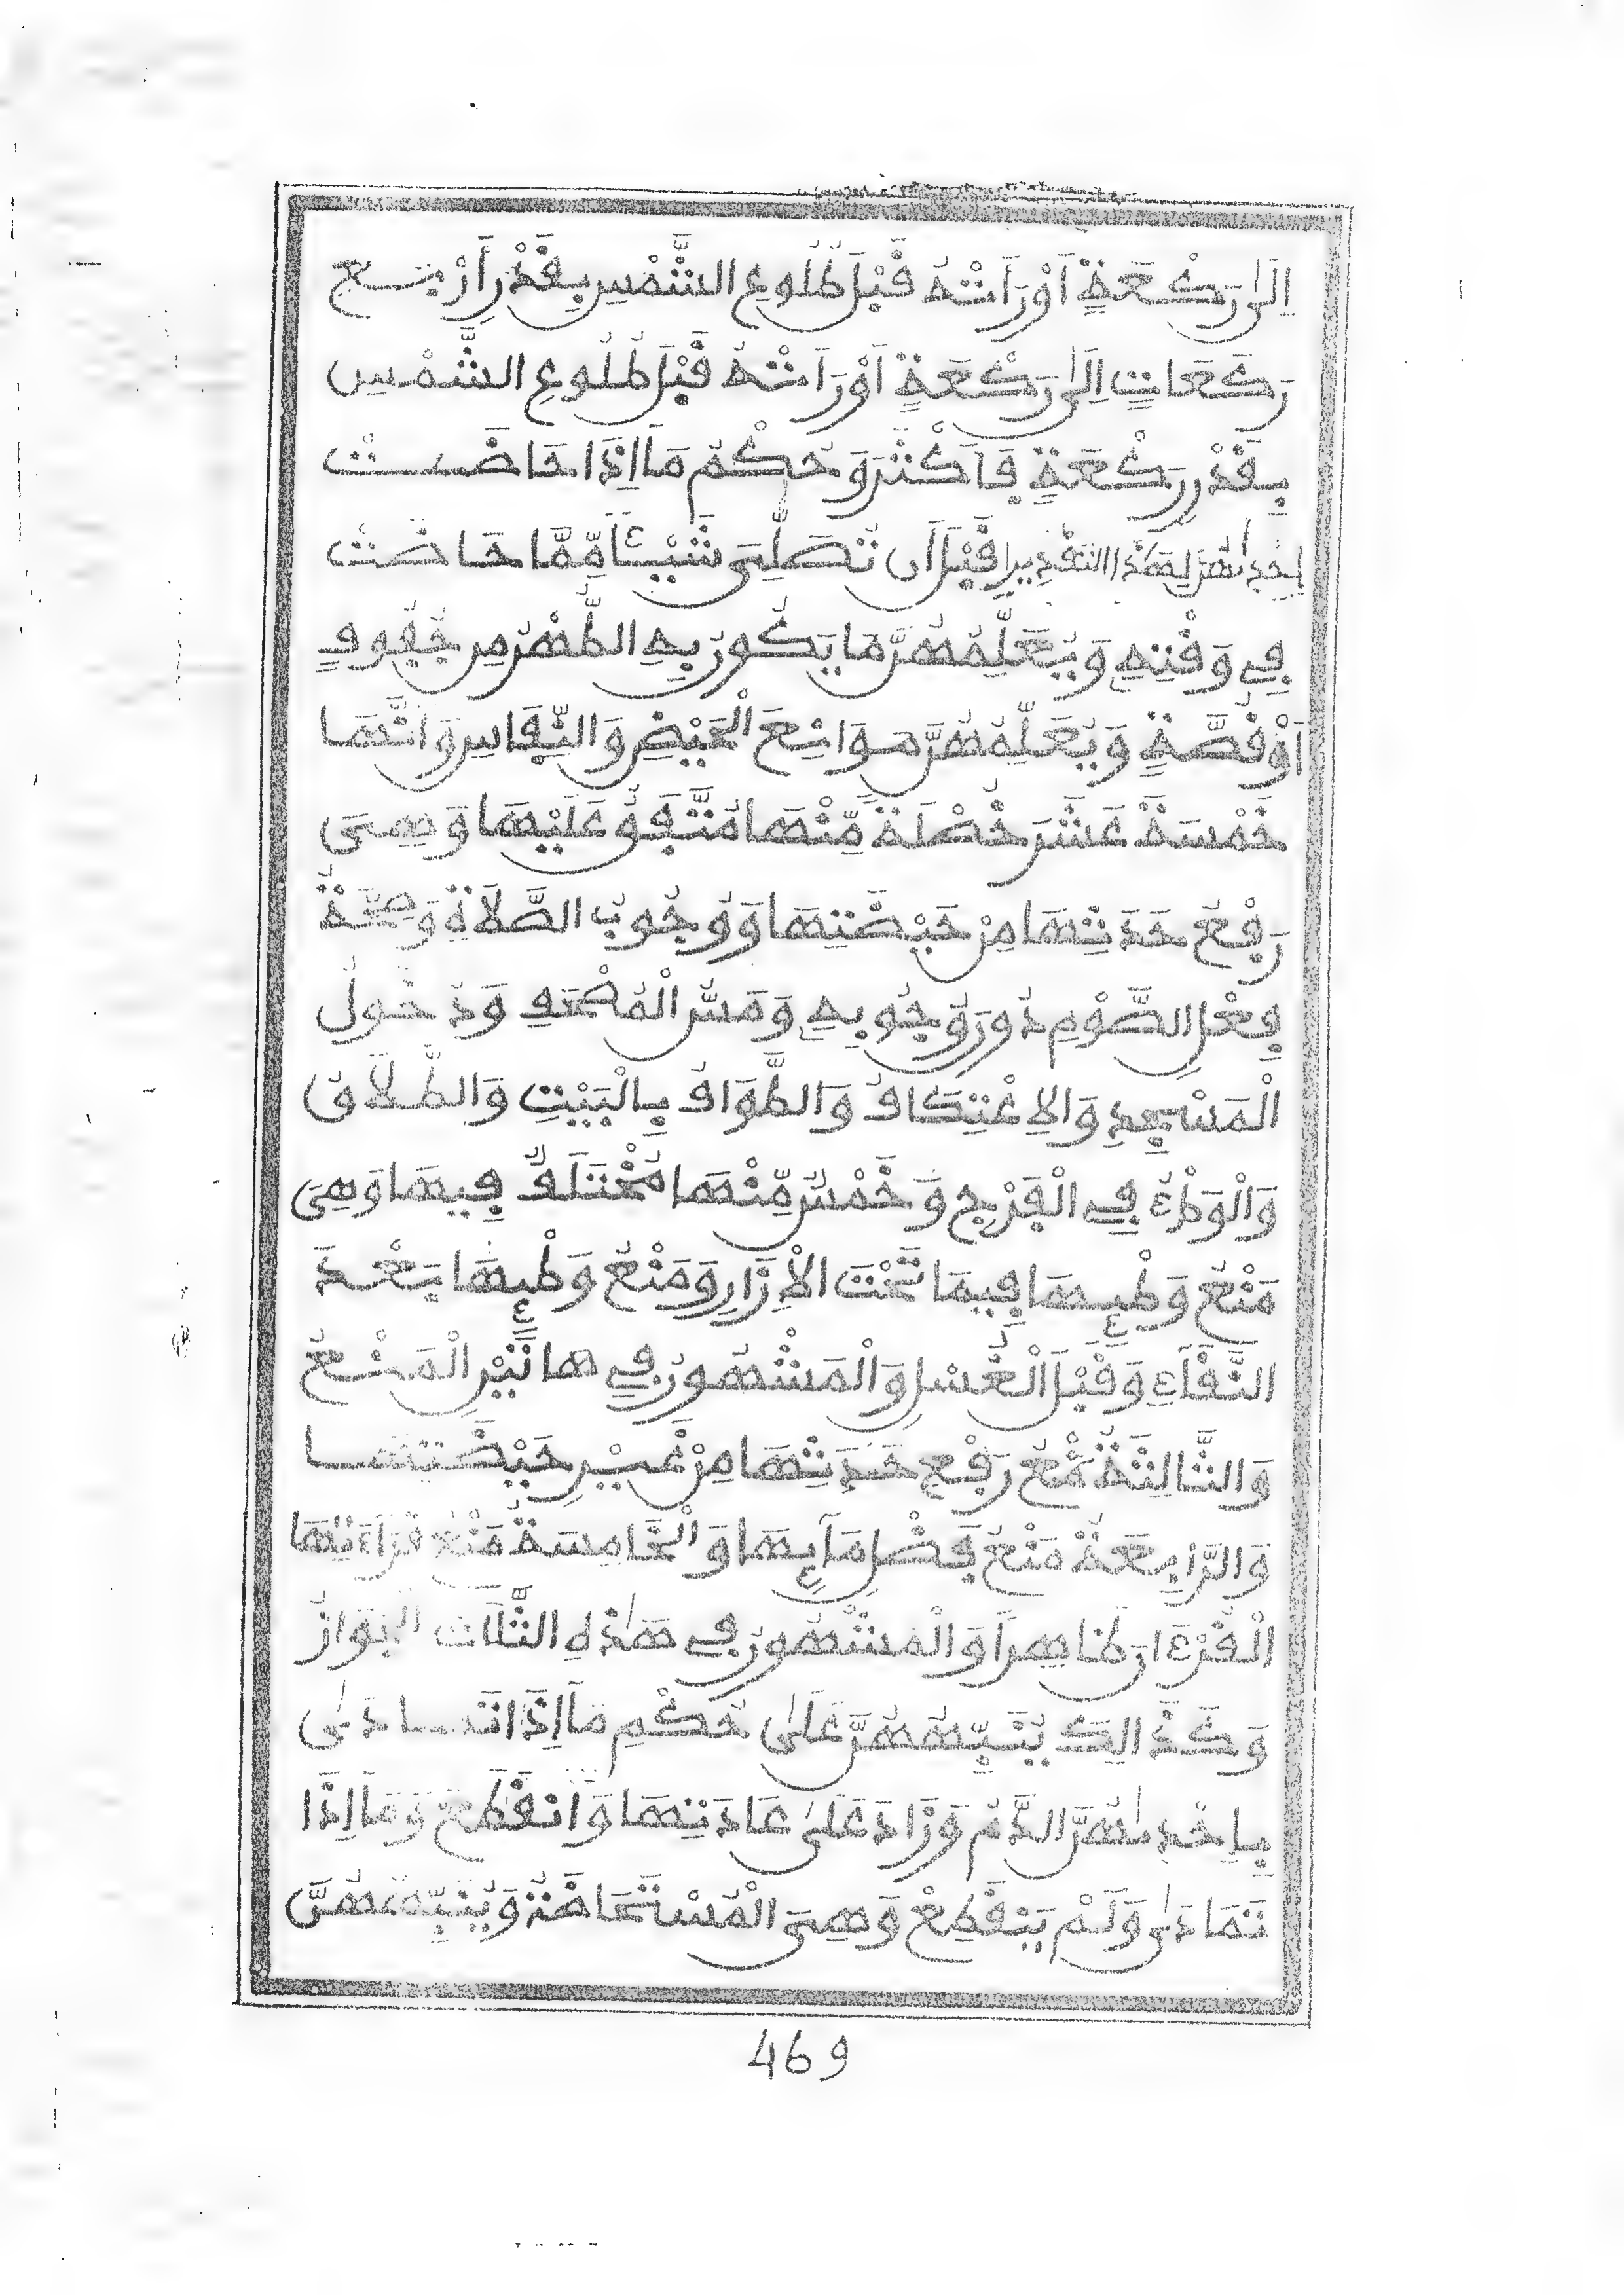 اِلَىٰ رَكْعَةٍ اَوْ رَاَتْهُ قَبْلَ طُلُوعِ الشَّمْسِ بِقَدْرِ اَرْبَعِ
رَكَعَاتٍ اِلَىٰ رَكْعَةٍ اَوْ رَاَتْهُ قَبْلَ طُلُوعِ الشَّمْسِ
بِقَدْرِ رَكْعَةٍ فَاَكْثَرَ وَحُكْمُ مَآ اِذَا حَاضَتْ
اِحْدٰىهُنَّ لِهَذَا التَّقْدِيرِ قَبْلَ اَن تُصَلِّىَ شَيْـًٔا مِّمَّا حَاضَتْ
فِى وَقْتِهِ وَيُعَلِّمُهُنَّ مَا يَكُونُ بِهِ الطُّهْرُ مِن جُفُوفٍ
اَوْ قَصَّةٍ وَيُعَلِّمُهُنَّ مَوَانِعَ الْحَيْضِ وَالنِّفَاسِ وَاَنَّهَا
خَمْسَةَ عَشَرَ خَصْلَةً مِّنْهَا مُتَّفَقٌ عَلَيْهَا وَهِىَ
رَفْعُ حَدَثِهَا مِنْ حَيْضَتِهَا وَوُجُوبُ الصَّلَاةِ وَصِحَّةُ
فِعْلِ الصَّوْمِ دُونَ وُجُوبِهِ وَمَسُّ الْمُصْحَفِ وَدُخُولُ
الْمَسْجِدِ وَالاِعْتِكَافُ وَالطَّوَافُ بِالْبَيْتِ وَالطَّلَاقُ
وَالْوَطْءُ فِى الْفَرْجِ وَخَمْسٌ مِّنْهَا مُخْتَلَفٌ فِيهَا وَهِىَ
مَنْعُ وَطْئِهَا فِيمَا تَحْتَ الاِزَارِ وَمَنْعُ وَطْئِهَا بَعْدَ
النَّقَآءِ وَقَبْلَ الْغُسْلِ وَالْمَشْهُورُ فِى هَاتَيْنِ الْمَنْعُ
وَالثَّالِثَةُ مَنْعُ رَفْعِ حَدَثِهَا مِنْ غَيْرِ حَيْضَتِهَا
وَالرَّابِعَةُ مَنْعُ فَضْلِ مَآئِهَا وَالْخَامِسَةُ مَنْعُ قِرَآءَتِهَا
الْقُرْءَانَ ظَاهِراً وَالْمَشْهُورُ فِى هَٰذِهِ الثَّلَاثِ الْجَوَازُ
وَكَذَالِكَ يُنَبِّهُهُنَّ عَلَىٰ حُكْمِ مَآ اِذَا تَمَادَىٰ
بِاِحْدٰىهُنَّ الدَّمُ وَزَادَ عَلَىٰ عَادَتِهَا وَانْقَطَعَ وَمَآ اِذَا
تَمَادَىٰ وَلَمْ يَنْقَطِعْ وَهِىَ الْمُسْتَحَاضَةُ وَيُنَبِّهُهُنَّ
469